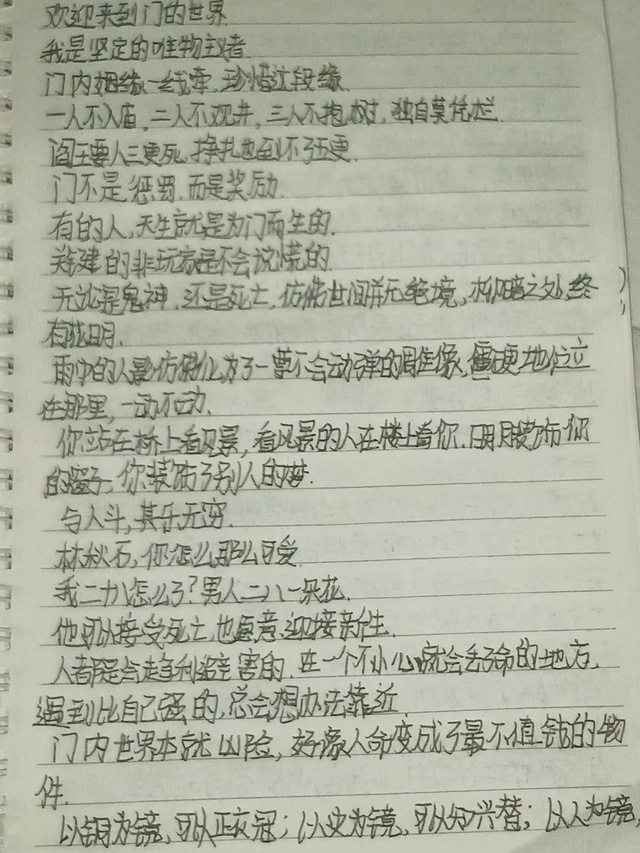 欢迎来到门的世界
我是坚定的唯物主义者
门内姻缘一线牵,珍惜这段缘
一人不入庙,二人不观井,三人不抱树,独自莫凭栏
阎王要人三更死,挣扎也到不了五更.
门不是惩罚,而是奖励.
有的人,天生就是为门而生的.
关键的非玩家是不会说谎的
无论是鬼神,还是死亡,仿佛世间并无绝境,柳暗之处,终
有花明.
雨中的人影仿佛化为了一尊不会动弹的雕像,僵硬地伫立
在那里,一动不动.
你站在桥上看风景,看风景的人在楼上看你.明月装饰你
的窗子,你装饰了别人的梦.
与人斗,其乐无穷.
林秋石,你怎么那么可爱
我二十八怎么了?男人二八一朵花.
他可以接受死亡,也愿意迎接新生.
人都是会趋利避害的.在一个不小心就会丢命的地方,
遇到比自己强的,总会想办法靠近
门内世界本就凶险,好像人命变成了最不值钱的物
件.
以铜为镜,可以正衣冠;以史为镜,可以知兴替;以人为镜,